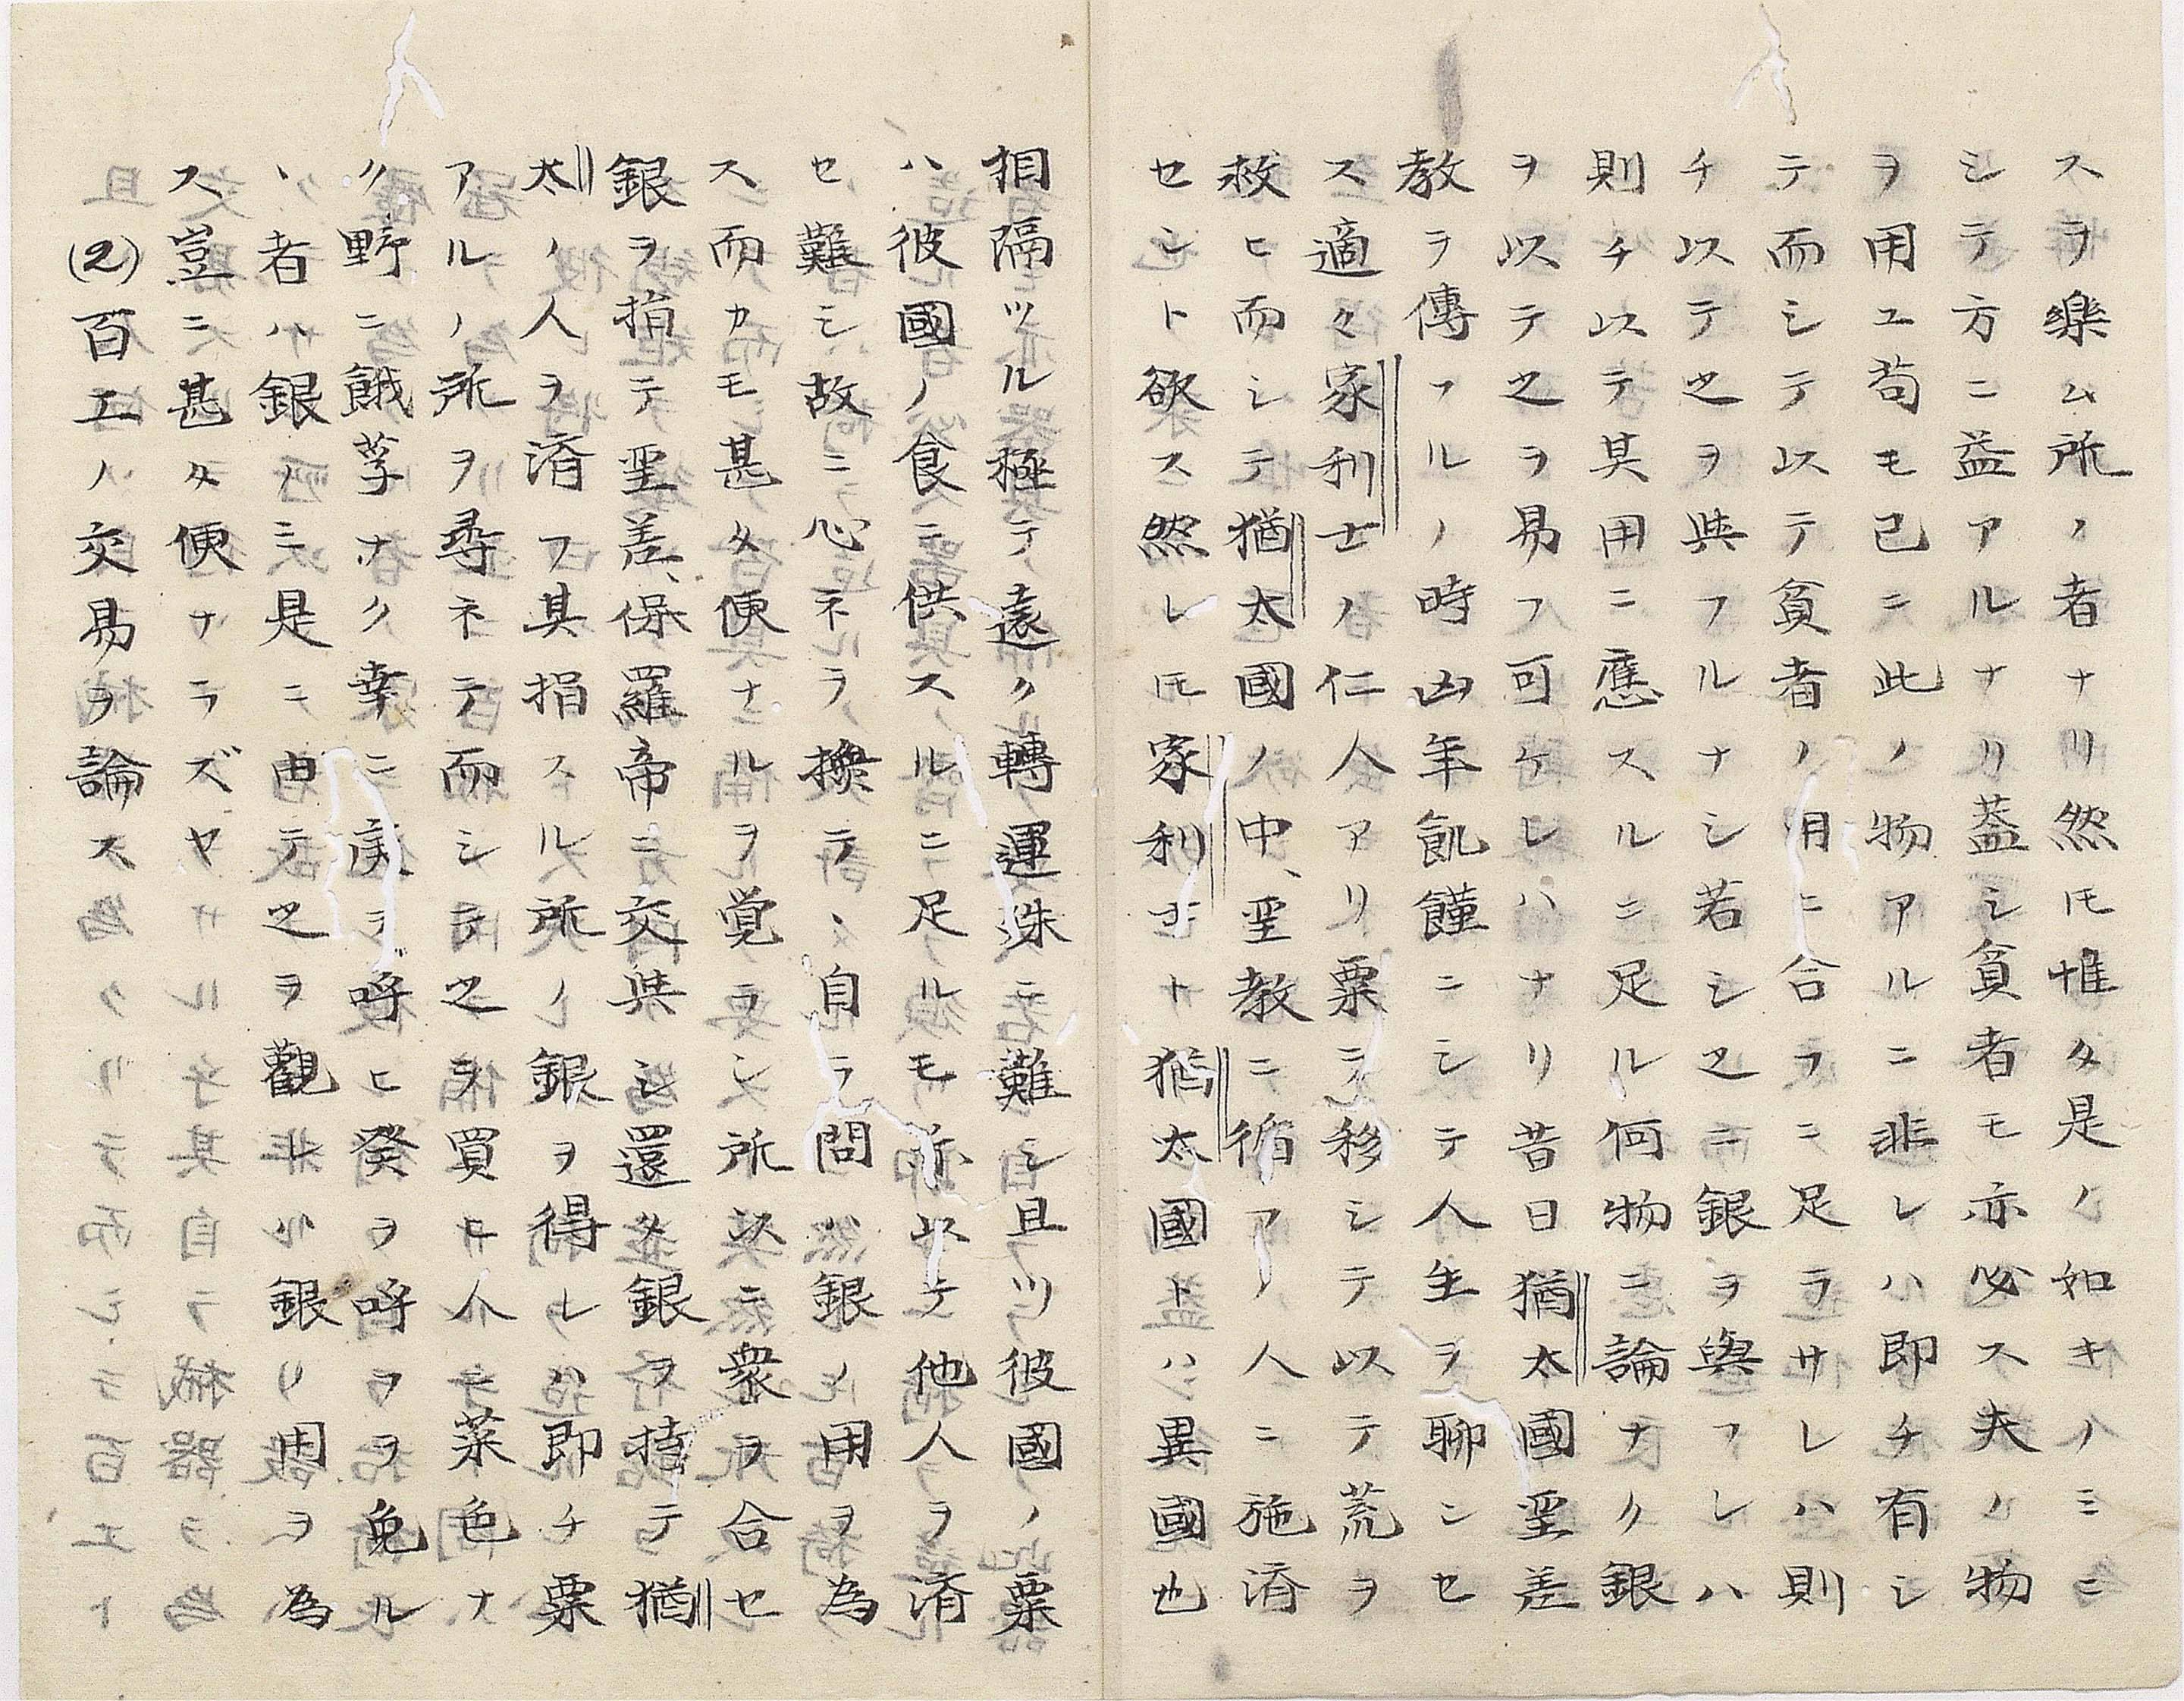 スヲ樂ム所ノ者ナリ然𪜈惟タ是ノ如キノミニ
シテ方ニ益アルナリ蓋シ貧者モ亦必ス夫ノ物
ヲ用ユ苟モ已ニ此ノ物アルニ非レハ即チ有シ
テ而シテ以テ貧者ノ用ニ合フニ足ラサレハ則
チ以テ之ヲ與フルナシ若シ之ニ銀ヲ與フレハ
則チ以テ其用ニ應スルニ足ル何物ニ論ナク銀
ヲ以テ之ヲ易フ可ケレハナリ昔日猶太國聖差
教ヲ傳フルノ時凶年飢饉ニシテ人生ヲ聊ンセ
ス適々家利士ノ仁人アリ粟ヲ移シテ以テ荒ヲ
救ヒ而シテ猶太國ノ中、聖教ニ循フノ人ニ施済
セント欲ス然レ𪜈家利士ト猶太國トハ異國也
相隔ツル極テ遠ク轉運殊ニ難シ且ツ彼國ノ粟
ハ彼國ノ食ニ供スルニ足ルモ以テ他人ヲ済
セ難シ故ニ心ネヲ換テ自ラ問ハ銀ノ用ヲ為
ス而カモ甚タ便ナルヲ覚ラシ所以ニ衆ヲ合セ
銀ヲ捐テ聖差、保羅帝ニ交與シ還タ銀ヲ持テ猶
太ノ人ヲ済フ其捐スル所ノ銀ヲ得レハ即チ粟
アルノ所ヲ尋ネテ而シテ之ヲ買ヒ人ニ菜色ナ
ク野ニ餓莩ナク幸ニ庚ヲ呼ヒ癸ヲ呼フヲ免ル
、者ハ銀ノミ是ニ由テ之ヲ觀レハ銀ノ用ヲ為
ス豈ニ甚タ便ナラズヤ
(2)百工ノ交易ヲ論ス